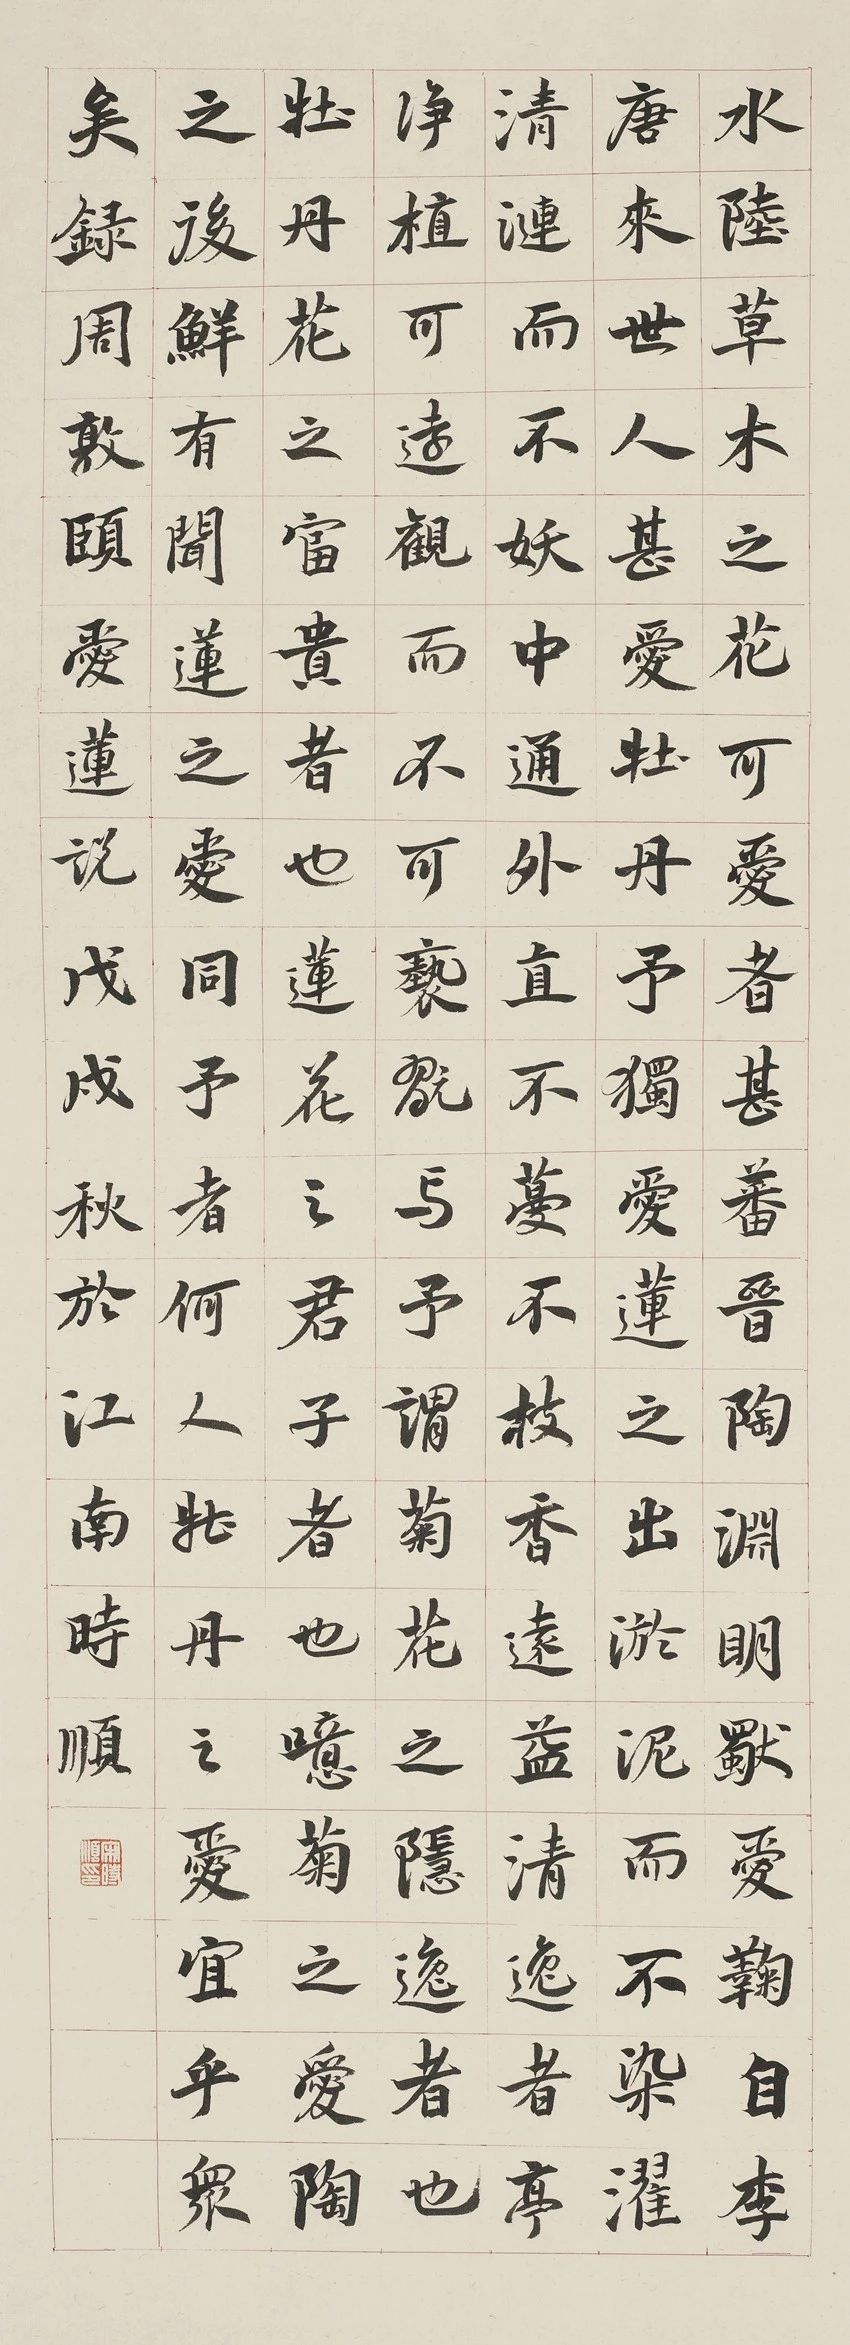 水陸草木之花可愛者甚蕃晉陶淵明獨愛鞠自李
唐來世人甚愛牡丹予獨愛蓮之出淤泥而不染濯
清漣而不妖中通外直不蔓不枝香遠益清逸者亭
净植可遠觀而不可褻翫焉予謂菊花之隱逸者也
牡丹花之富貴者也蓮花之君子者也噫菊之愛陶
之後鮮有聞蓮之愛同予者何人牡丹之愛宜乎衆
矣録周敦頤愛蓮説戊戌秋於江南時順